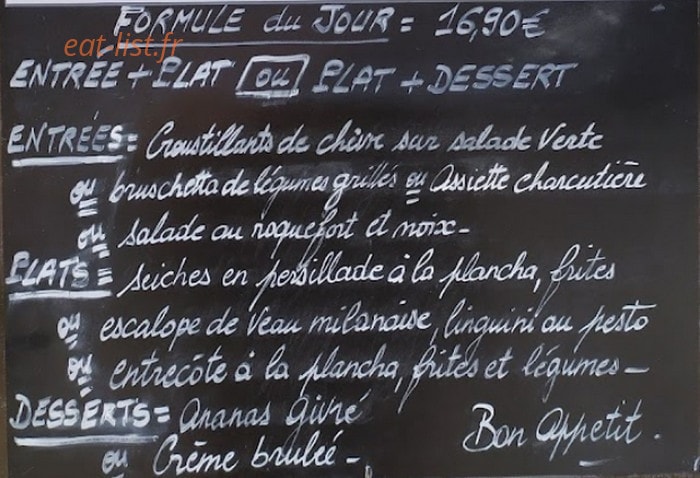 FORMULE du JOUR = 16,90€
eat-list.fr
ENTRÉE + PLAT ou PLAT + DESSERT
ENTRÉES = Croustillants de chèvre sur salade Verte
ou bruschetta de légumes grillés ou Assiette charcutière
ou salade au roquefort et noix -
PLATS = seiches en persillade à la plancha, frites
ou escalope de veau milanaise, linguini au pesto
ou entrecôte à la plancha, frites et légumes -
DESSERTS = Ananas givré
ou Crème brulée -
Bon Appetit.